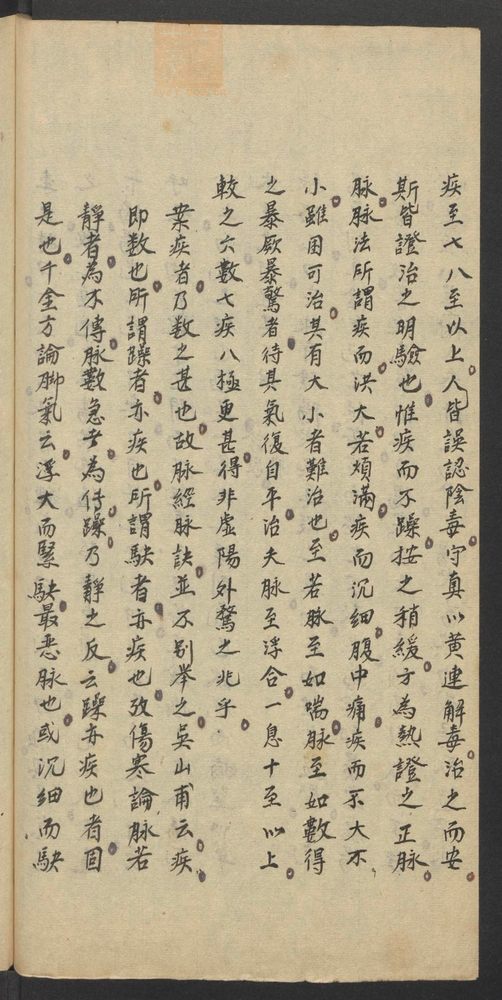 疾至七八至以上人皆誤認陰毒守真以黄連解毒治之而安
斯皆證治之明驗也惟疾而不躁按之稍緩方為熱證之正脉
脉脉法所謂疾而洪大若煩滿疾而沉細腹中痛疾而不大不
小雖困可治其有大小者難治也至若脉至如喘脉至如數得
之暴厥暴驚者待其氣復自平治夫脉至浮合一息十至以上
較之六數七疾八極更甚得非虛陽外騖之兆乎
案疾者乃數之甚也故脉經脉訣並不别举之吳山甫云疾
即数也所謂躁者亦疾也所謂駃者亦疾也攷傷寒論脉若
靜者為不傳脉數急者為傳躁乃靜之反云躁亦疾也者固
是也千金方論脚氣云浮大而緊駃最悪脉也或沉細而駃